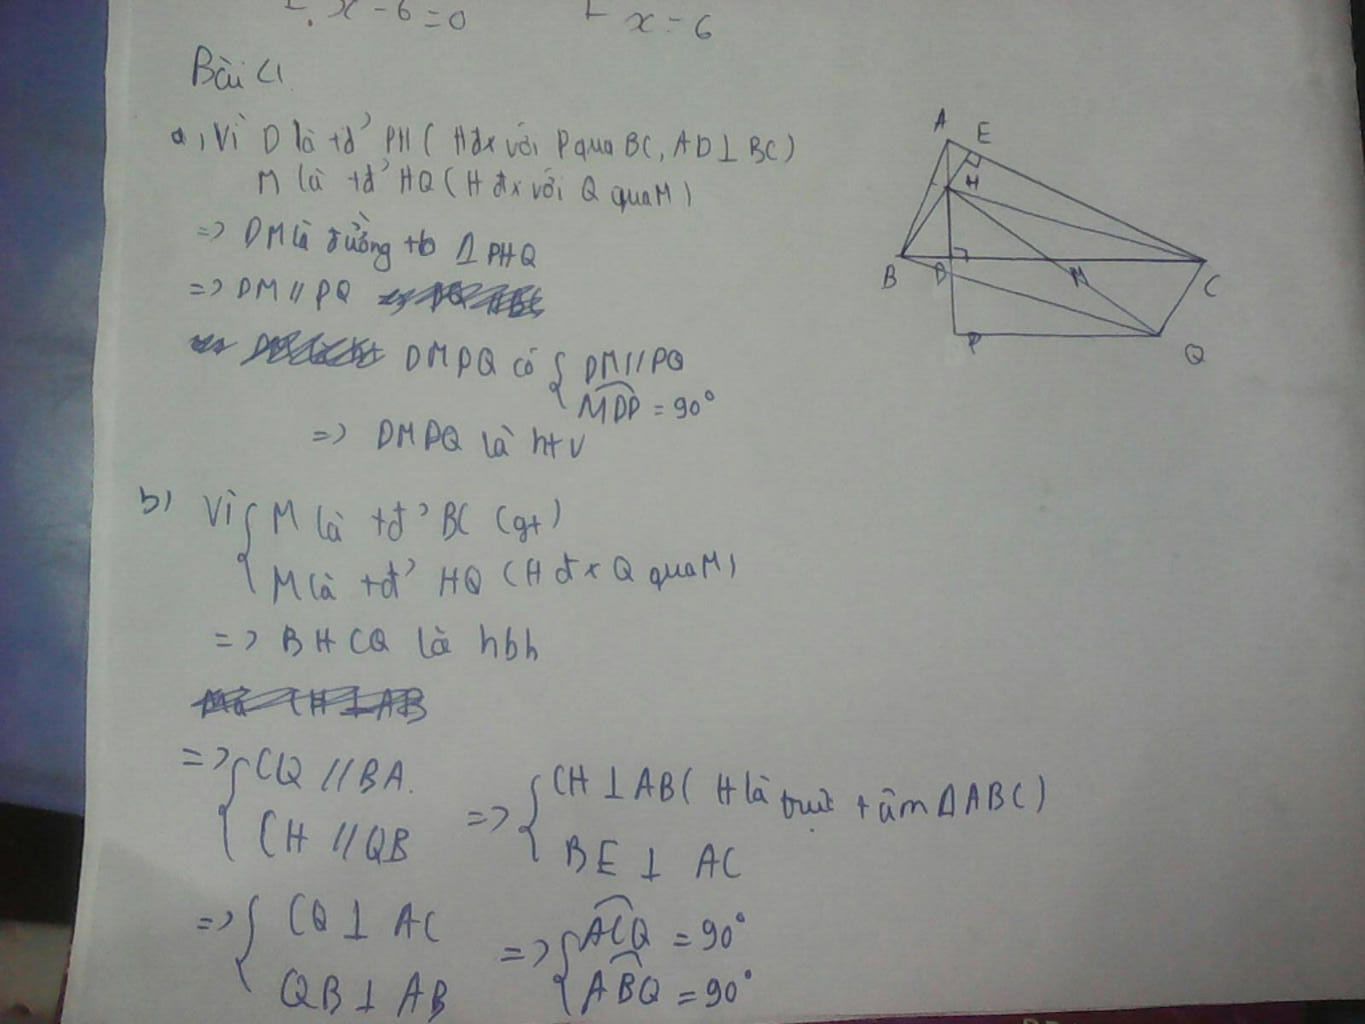 x - 6 = 0
x = 6
Bài 4
a, Vì D là tđ' PH ( H đx với P qua BC, AD ⊥ BC )
M là tđ' HQ ( H đx với Q qua M )
=> DM là đường tb Δ PHQ
=> DM // PQ
DMPQ có { DM // PQ
MDP = 90°
=> DMPQ là htv
b) Vì { M là tđ' BC (gt)
M là tđ' HQ ( H đx Q qua M )
=> BHCQ là hbh
=> { CQ // BA.
CH // QB
=> { CH ⊥ AB ( H là trực tâm Δ ABC )
BE ⊥ AC
=> { CQ ⊥ AC
QB ⊥ AB
=> { ACQ = 90°
ABQ = 90°
A E
H
B D M C
P Q